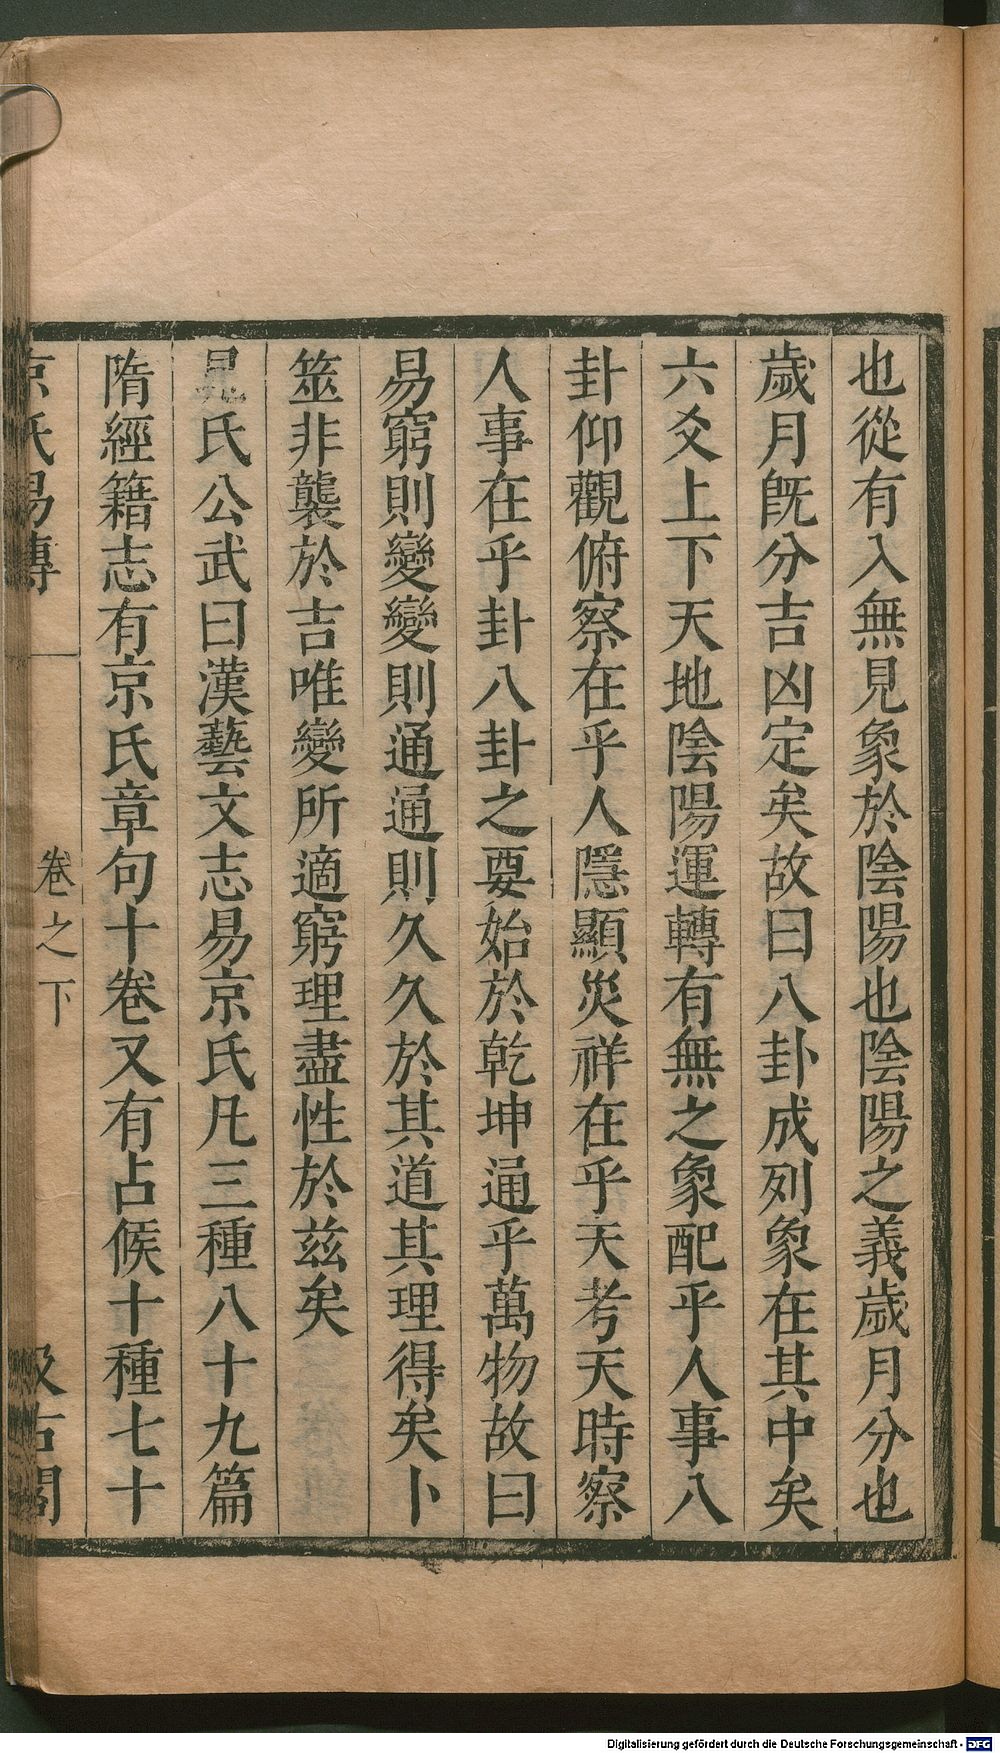 也從有入無見象於陰陽也陰陽之義歲月分也
歲月旣分吉凶定矣故曰八卦成列象在其中矣
六爻上下天地陰陽運轉有無之象配乎人事八
卦仰觀俯察在乎人隱顯災祥在乎天考天時察
人事在乎卦八卦之要始於乾坤通乎萬物故曰
易窮則變變則通通則久久於其道其理得矣卜
筮非襲於吉唯變所適窮理盡性於兹矣
晁氏公武曰漢藝文志易京氏凡三種八十九篇
隋經籍志有京氏章句十卷又有占候十種七十
京氏易傳 卷之下 汲古閣
Digitalisierung gefördert durch die Deutsche Forschungsgemeinschaft - DFG